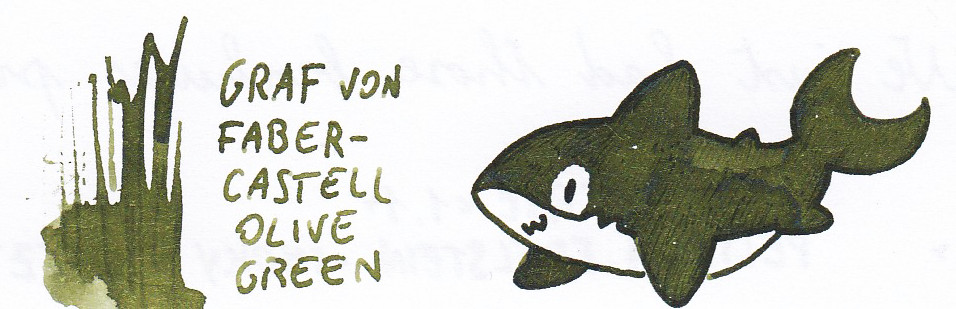 GRAF VON
FABER-
CASTELL
OLIVE
GREEN